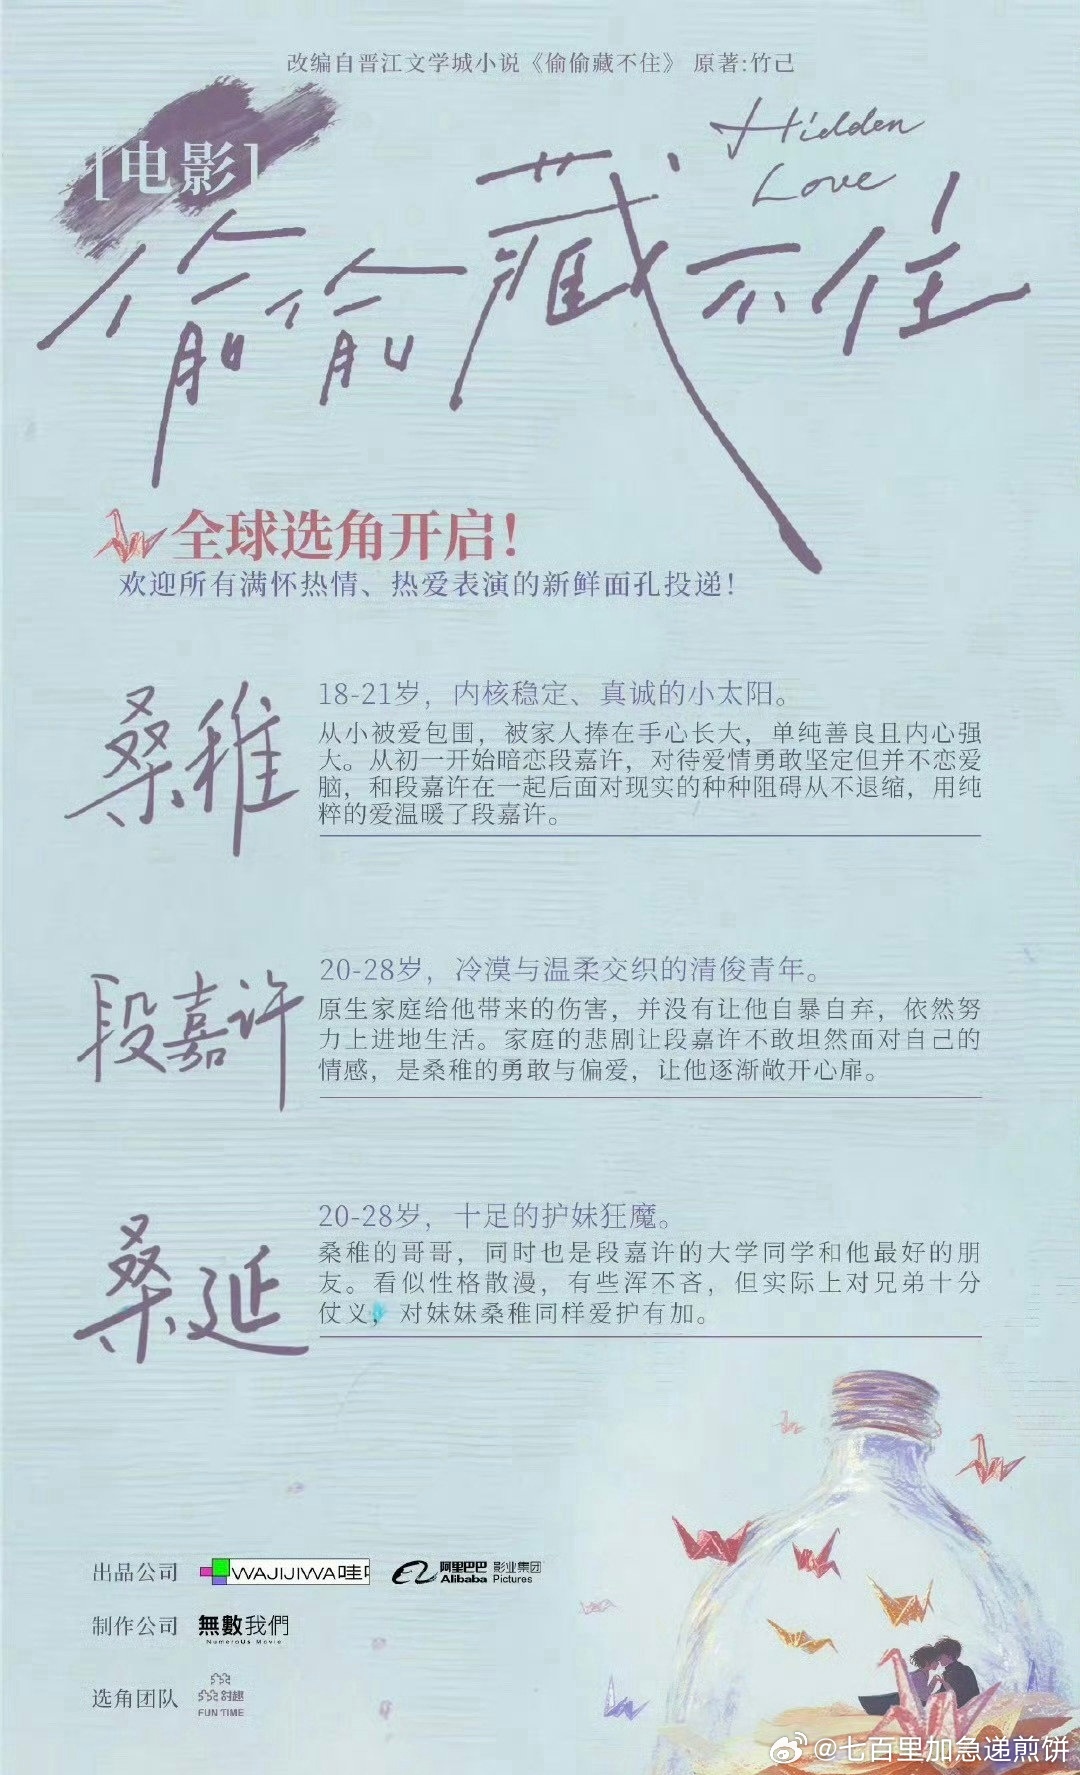 改编自晋江文学城小说《偷偷藏不住》 原著:竹已
[电影]
Hidden
Love
偷偷藏不住
全球选角开启！
欢迎所有满怀热情、热爱表演的新鲜面孔投递！
桑稚
18-21岁，内核稳定、真诚的小太阳。
从小被爱包围，被家人捧在手心长大，单纯善良且内心强
大。从初一开始暗恋段嘉许，对待爱情勇敢坚定但并不恋爱
脑，和段嘉许在一起后面对现实的种种阻碍从不退缩，用纯
粹的爱温暖了段嘉许。
段嘉许
20-28岁，冷漠与温柔交织的清俊青年。
原生家庭给他带来的伤害，并没有让他自暴自弃，依然努
力上进地生活。家庭的悲剧让段嘉许不敢坦然面对自己的
情感，是桑稚的勇敢与偏爱，让他逐渐敞开心扉。
桑延
20-28岁，十足的护妹狂魔。
桑稚的哥哥，同时也是段嘉许的大学同学和他最好的朋
友。看似性格散漫，有些浑不吝，但实际上对兄弟十分
仗义，对妹妹桑稚同样爱护有加。
出品公司 WAJIJIWA哇 阿里巴巴 影业集团
Alibaba Pictures
制作公司 無數我們
NumeroUs Movie
选角团队 时趣
FUN TIME
@七百里加急递煎饼